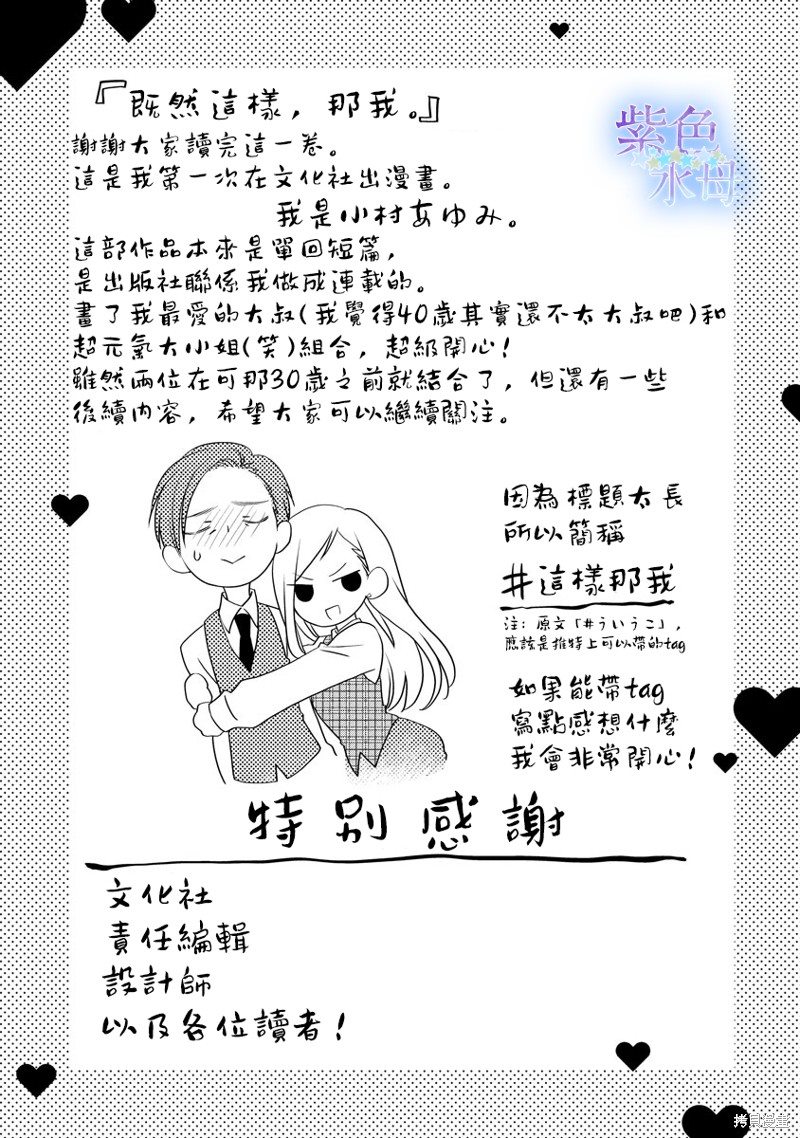 『既然這樣，那我。』
謝謝大家讀完這一卷。
這是我第一次在文化社出漫畫。
我是小村あゆみ。
這部作品本來是單回短篇，
是出版社聯係我做成連載的。
畫了我最愛的大叔(我覺得40歲其實還不太大叔吧)和
超元氣大小姐(笑)組合，超級開心！
雖然兩位在可那30歲之前就結合了，但還有一些
後續內容，希望大家可以繼續關注。
因為標題太長
所以簡稱
#這樣那我
注：原文「#ういうこ」，
應該是推特上可以帶的tag
如果能帶tag
寫點感想什麼
我會非常開心！
特別感謝
文化社
責任編輯
設計師
以及各位讀者！
紫色
水母
拷貝漫畫